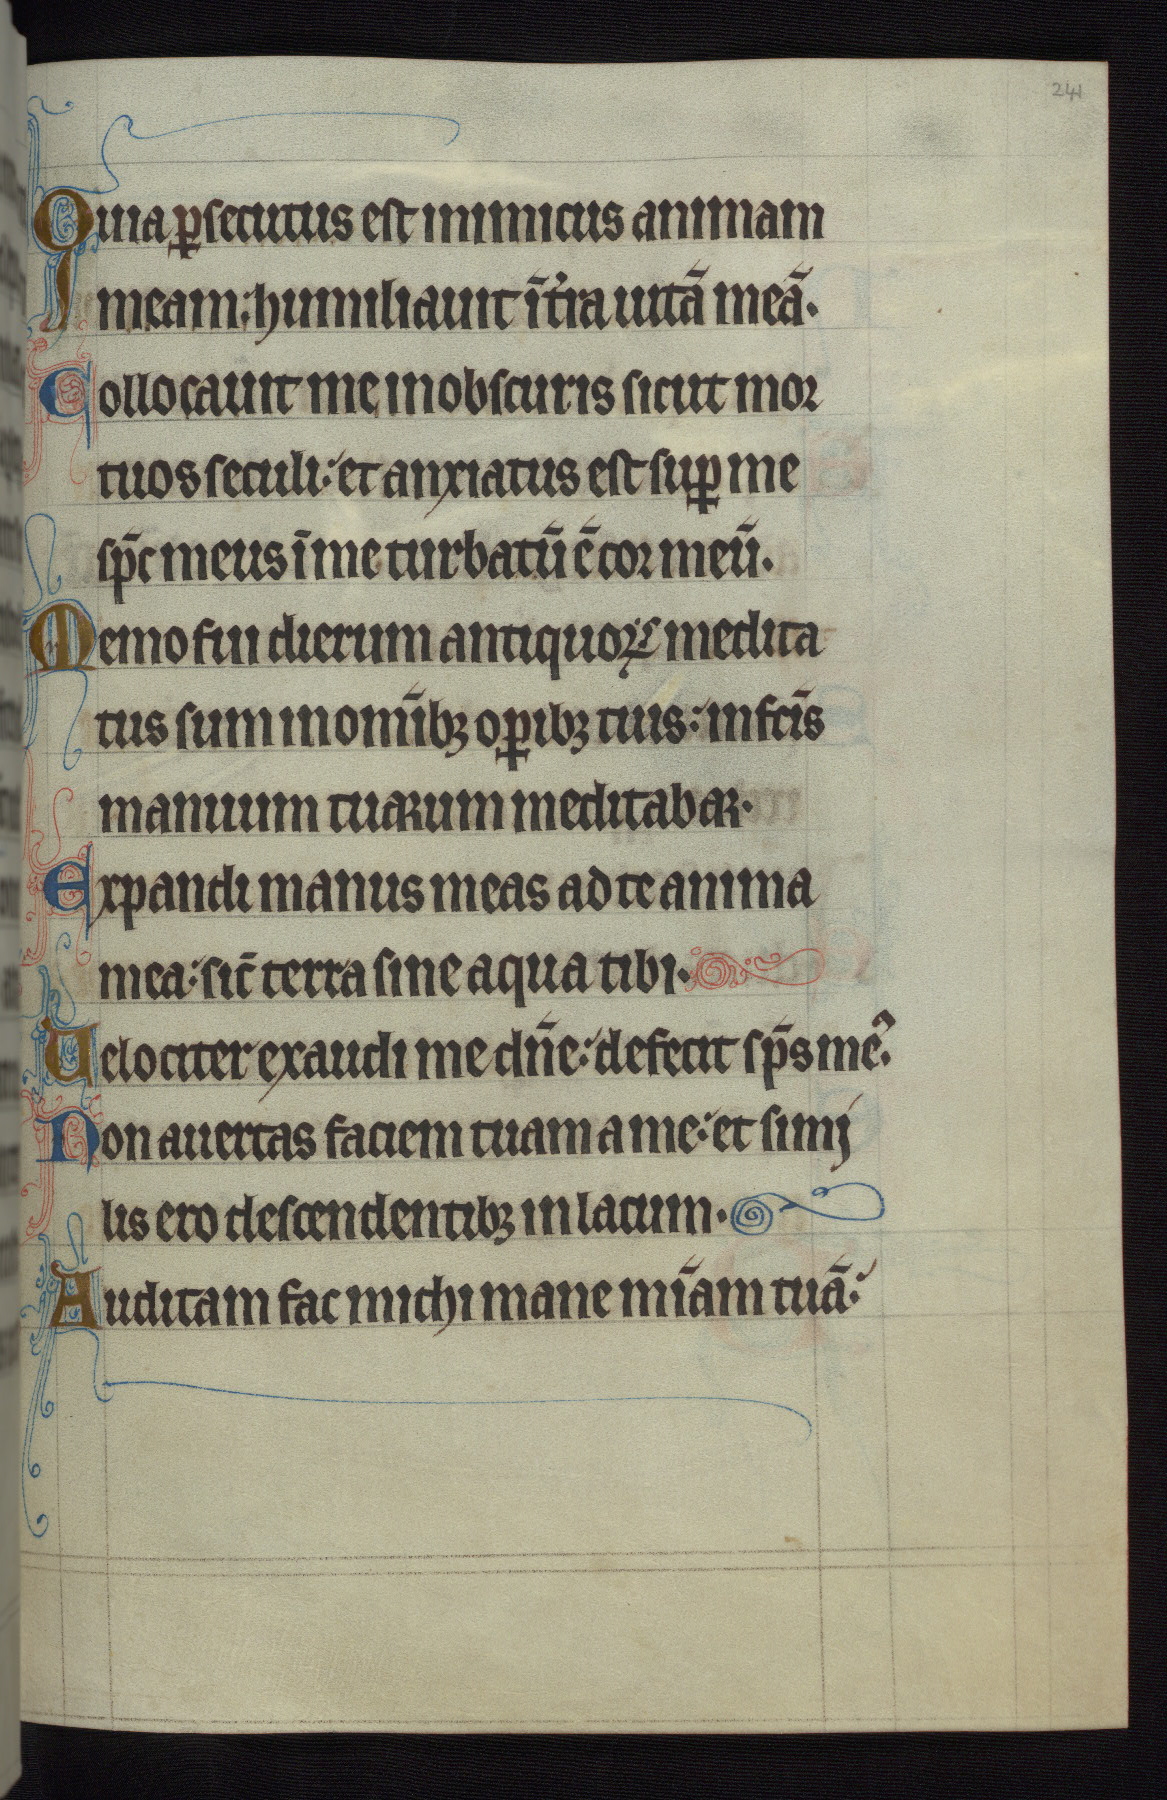 241
Quia ꝑsecutus est inimicus animam
meam: humiliauit ĩ t̾ra uitã meã.
Collocauit me in obscuris sicut mor
tuos seculi: et anxiatus est suꝑ me
sp̃c meus ĩ me turbatũ ẽ cor meũ.
Memor fui dierum antiquoꝝ medita
tus sum in om̃ibꝫ oꝑibꝫ tuis: in fc̃is
manuum tuarum meditabar.
Expandi manus meas ad te anima
mea: sic̃ terra sine aqua tibi.
Uelociter exaudi me dñe: defecit sp̃s me᾿.
Non auertas faciem tuam a me: et simi
lis ero descendentibꝫ in lacum.
Auditam fac michi mane mĩam tuã: